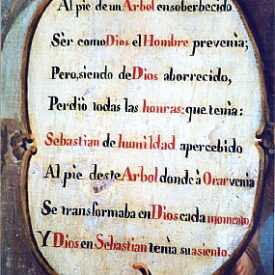 Al pie de un Arbol ensoberbecido
Sèr como Dios el Hombre prevenia;
Pero, siendo de Dios aborrecido,
Perdiò todas las honras; que tenia:
Sebastian de humildad apercebido
Al pie deste Arbol donde à Orar venia
Se transformaba en Dios cada momento,
Y Dios en Sebastian tenia su asiento.